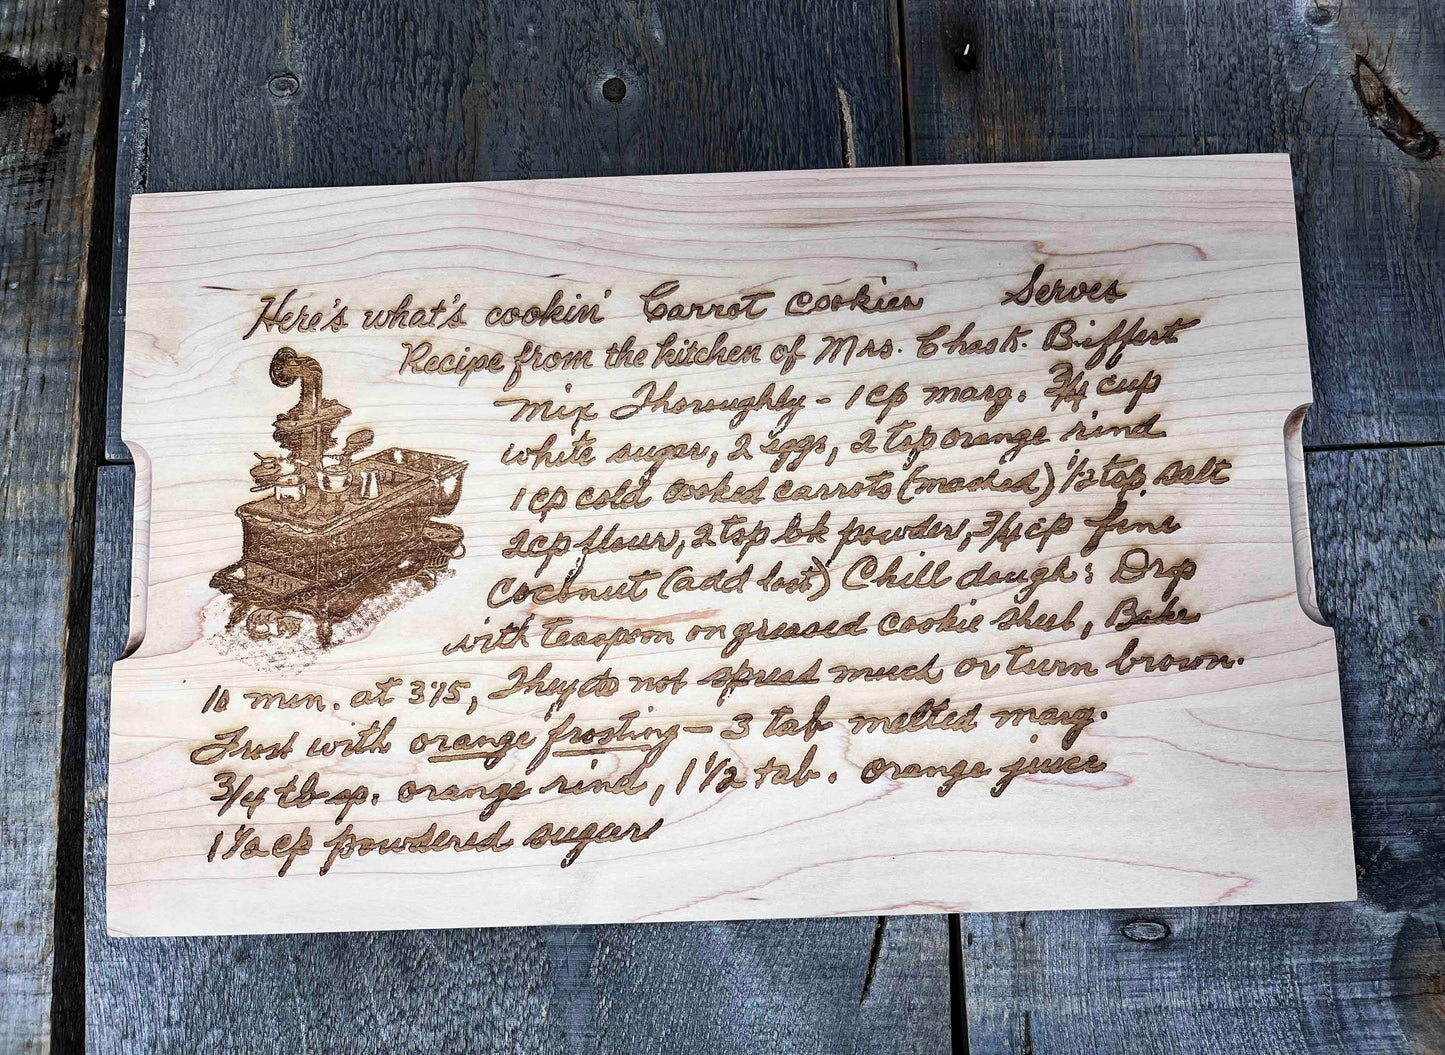 Here's what's cookin' Carrot Cookies Serves
Recipe from the kitchen of Mrs. Chas. K. Biffert
Mix Thoroughly - 1 cp marg. 3/4 cup
white sugar, 2 eggs, 2 tsp orange rind
1 cp cold cooked carrots (mashed) 1/2 tsp salt
2 cp flour, 2 tsp bk powder, 3/4 cp fine
Coconut (add last) Chill dough; Drop
with teaspoon on greased cookie sheet, Bake
10 min. at 375, They do not spread much or turn brown.
Frost with orange frosting - 3 tab melted marg.
3/4 tb sp. orange rind, 1 1/2 tab. orange juice
1 1/2 cp powdered sugar